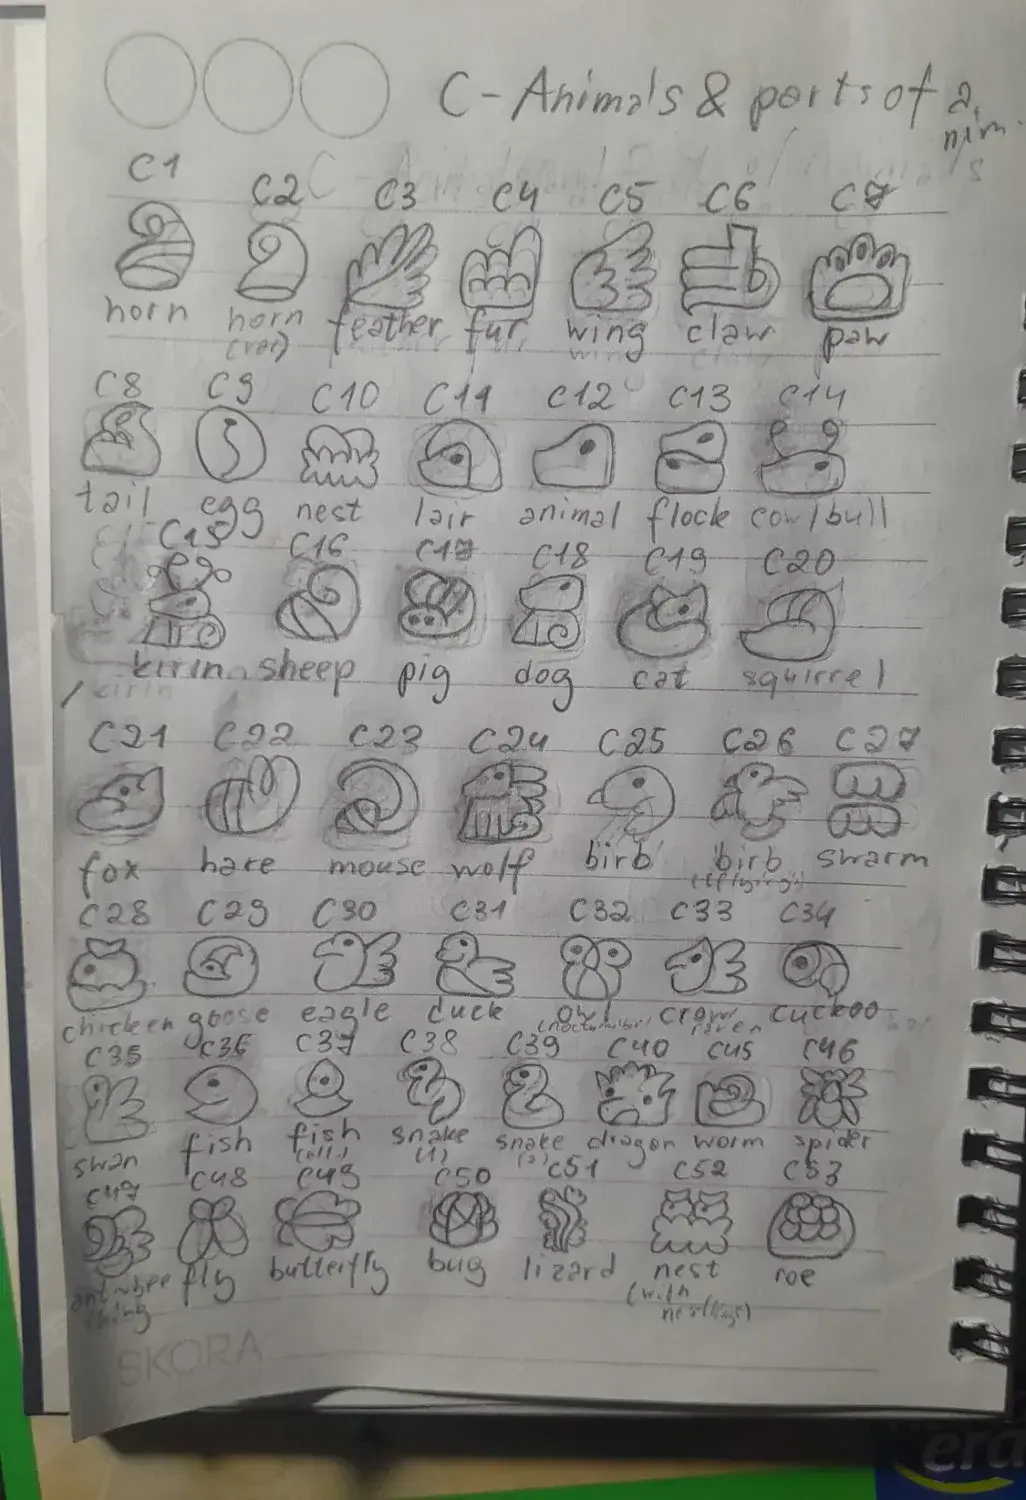 C - Animals & parts of a.
nim.
C1 C2 C3 C4 C5 C6 C7
horn horn feather fur wing claw paw
(var)
C8 C9 C10 C11 C12 C13 C14
tail egg nest lair animal flock cow/bull
C15 C16 C17 C18 C19 C20
kirin sheep pig dog cat squirrel
kirin
C21 C22 C23 C24 C25 C26 C27
fox hare mouse wolf birb birb swarm
(flying)
C28 C29 C30 C31 C32 C33 C34
chicken goose eagle duck owl crow cuckoo
raven
C35 C36 C37 C38 C39 C40 C45 C46
swan fish fish snake snake dragon worm spider
(alt.) (1) (2)
C47 C48 C49 C50 C51 C52 C53
ant~bee fly butterfly bug lizard nest roe
thing (with
SKORA
era